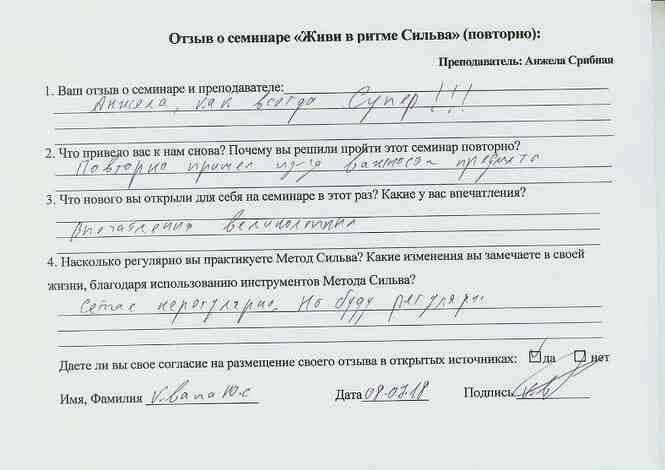 Отзыв о семинаре «Живи в ритме Сильва» (повторно):
Преподаватель: Анжела Срибная
1. Ваш отзыв о семинаре и преподавателе:
Анжела, как всегда Супер!!!
2. Что привело вас к нам снова? Почему вы решили пройти этот семинар повторно?
Повторно пришел из-за важности предмета
3. Что нового вы открыли для себя на семинаре в этот раз? Какие у вас впечатления?
Впечатления великолепные
4. Насколько регулярно вы практикуете Метод Сильва? Какие изменения вы замечаете в своей
жизни, благодаря использованию инструментов Метода Сильва?
Сейчас нерегулярно. Но буду регулярно
Даете ли вы свое согласие на размещение своего отзыва в открытых источниках: да нет
Имя, Фамилия Дата 08.07.18 Подпись